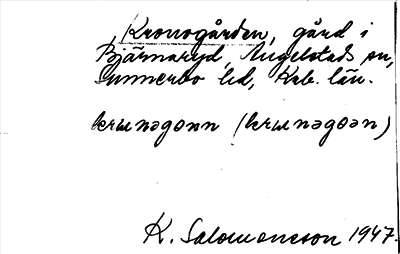 Kronogården, gård i
Bjärnaryd, Angelstads sn,
Sunnerbo hd, Krb. län.
krɯnəgonn (krɯnəgoən)
K. Salomonsson 1947.